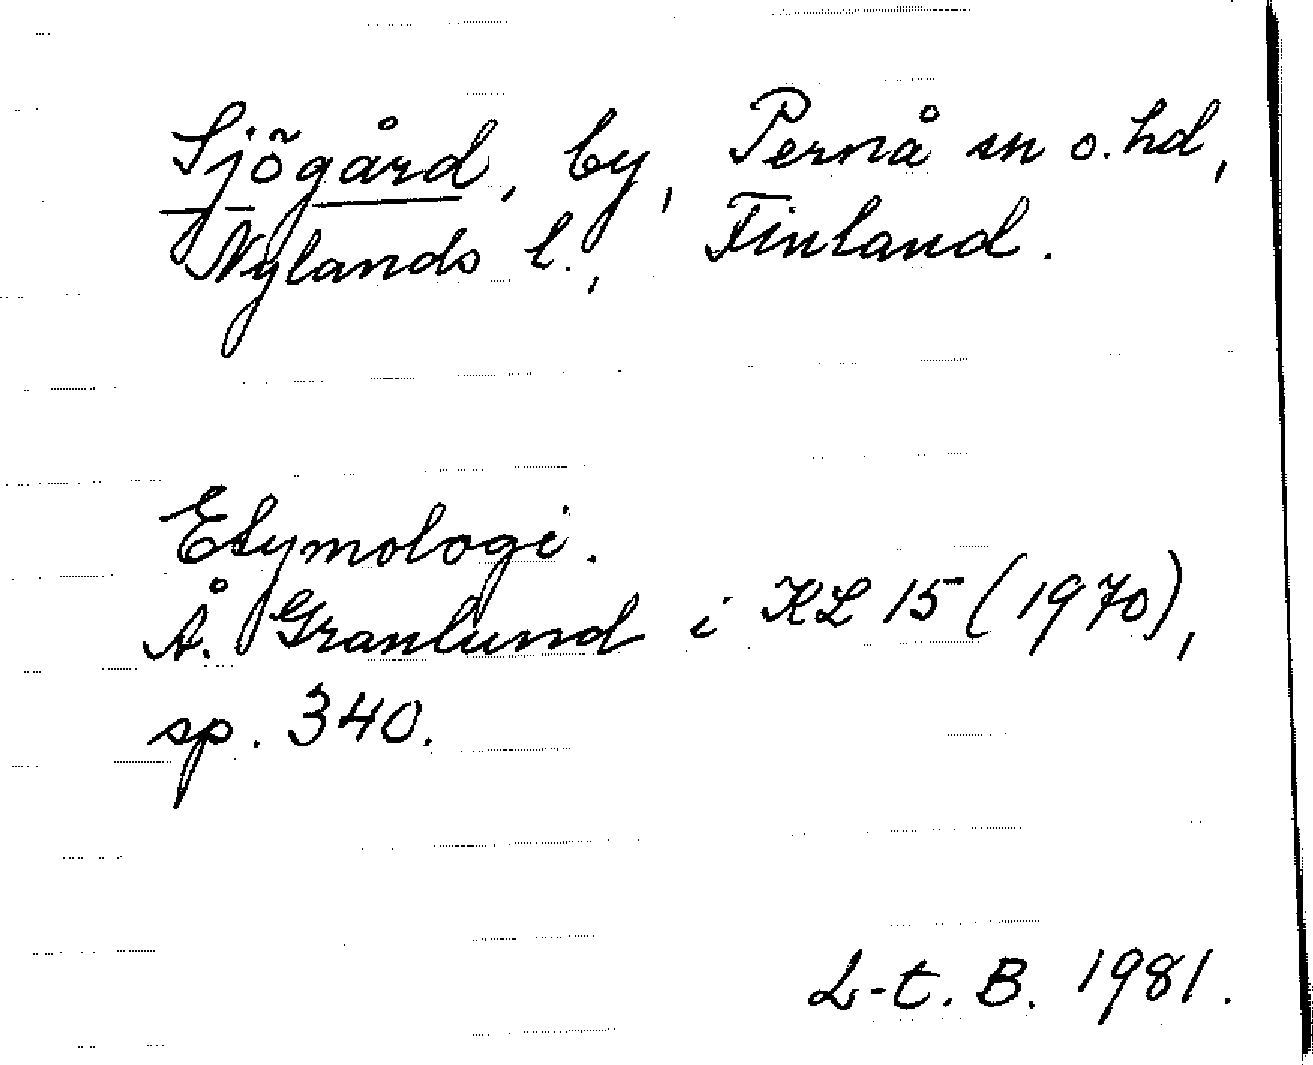 Sjögård, by, Pernå sn o. hd,
Nylands l., Finland.
Etymologi.
Å. Granlund i KL 15 (1970),
sp. 340.
L-t. B. 1981.